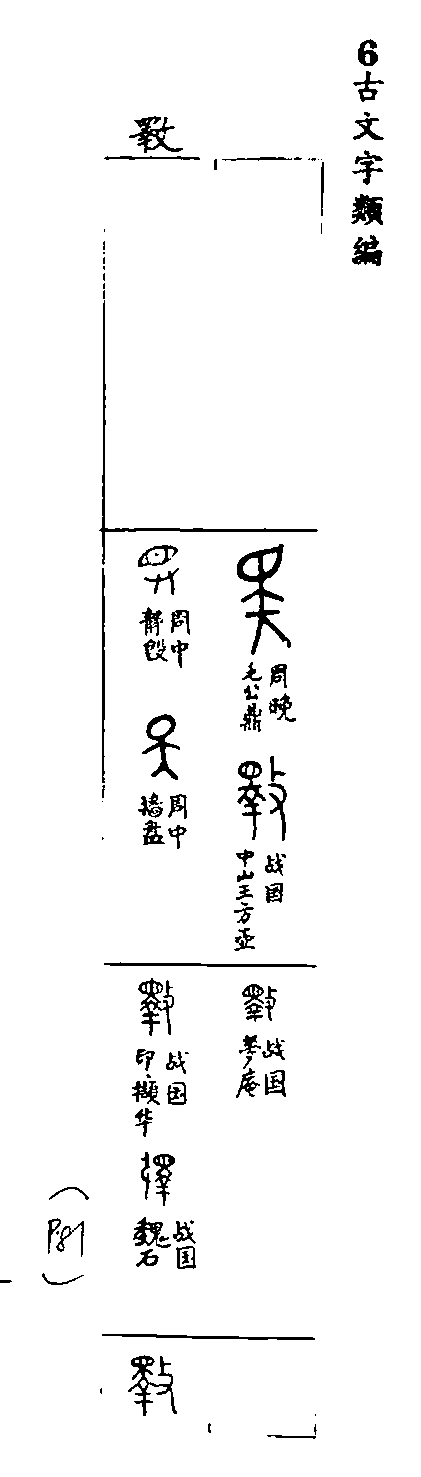 6古文字類編
斁
周晚
毛公鼎
战国
中山王方壶
周中
静𣪘
周中
墙盘
战国
夢庵
战国
印·擷华
战国
魏石
斁
(P.81)